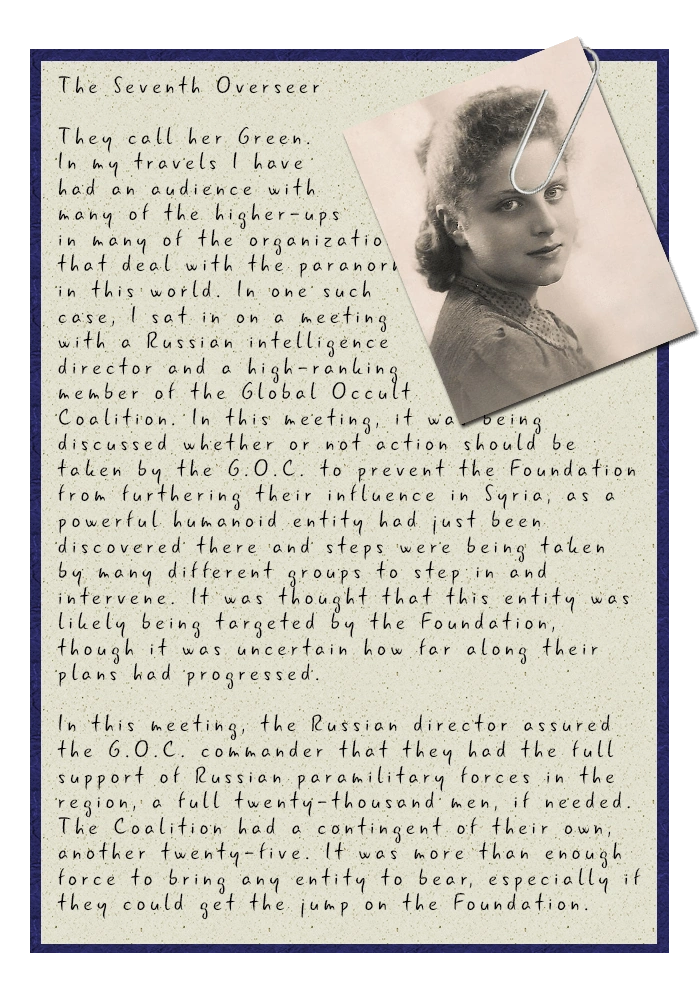 The Seventh Overseer
They call her Green.
In my travels I have
had an audience with
many of the higher-ups
in many of the organizatio
that deal with the paranor
in this world. In one such
case, I sat in on a meeting
with a Russian intelligence
director and a high-ranking
member of the Global Occult
Coalition. In this meeting, it wa being
discussed whether or not action should be
taken by the G.O.C. to prevent the Foundation
from furthering their influence in Syria, as a
powerful humanoid entity had just been
discovered there and steps were being taken
by many different groups to step in and
intervene. It was thought that this entity was
likely being targeted by the Foundation,
though it was uncertain how far along their
plans had progressed.
In this meeting, the Russian director assured
the G.O.C. commander that they had the full
support of Russian paramilitary forces in the
region, a full twenty-thousand men, if needed.
The Coalition had a contingent of their own,
another twenty-five. It was more than enough
force to bring any entity to bear, especially if
they could get the jump on the Foundation.